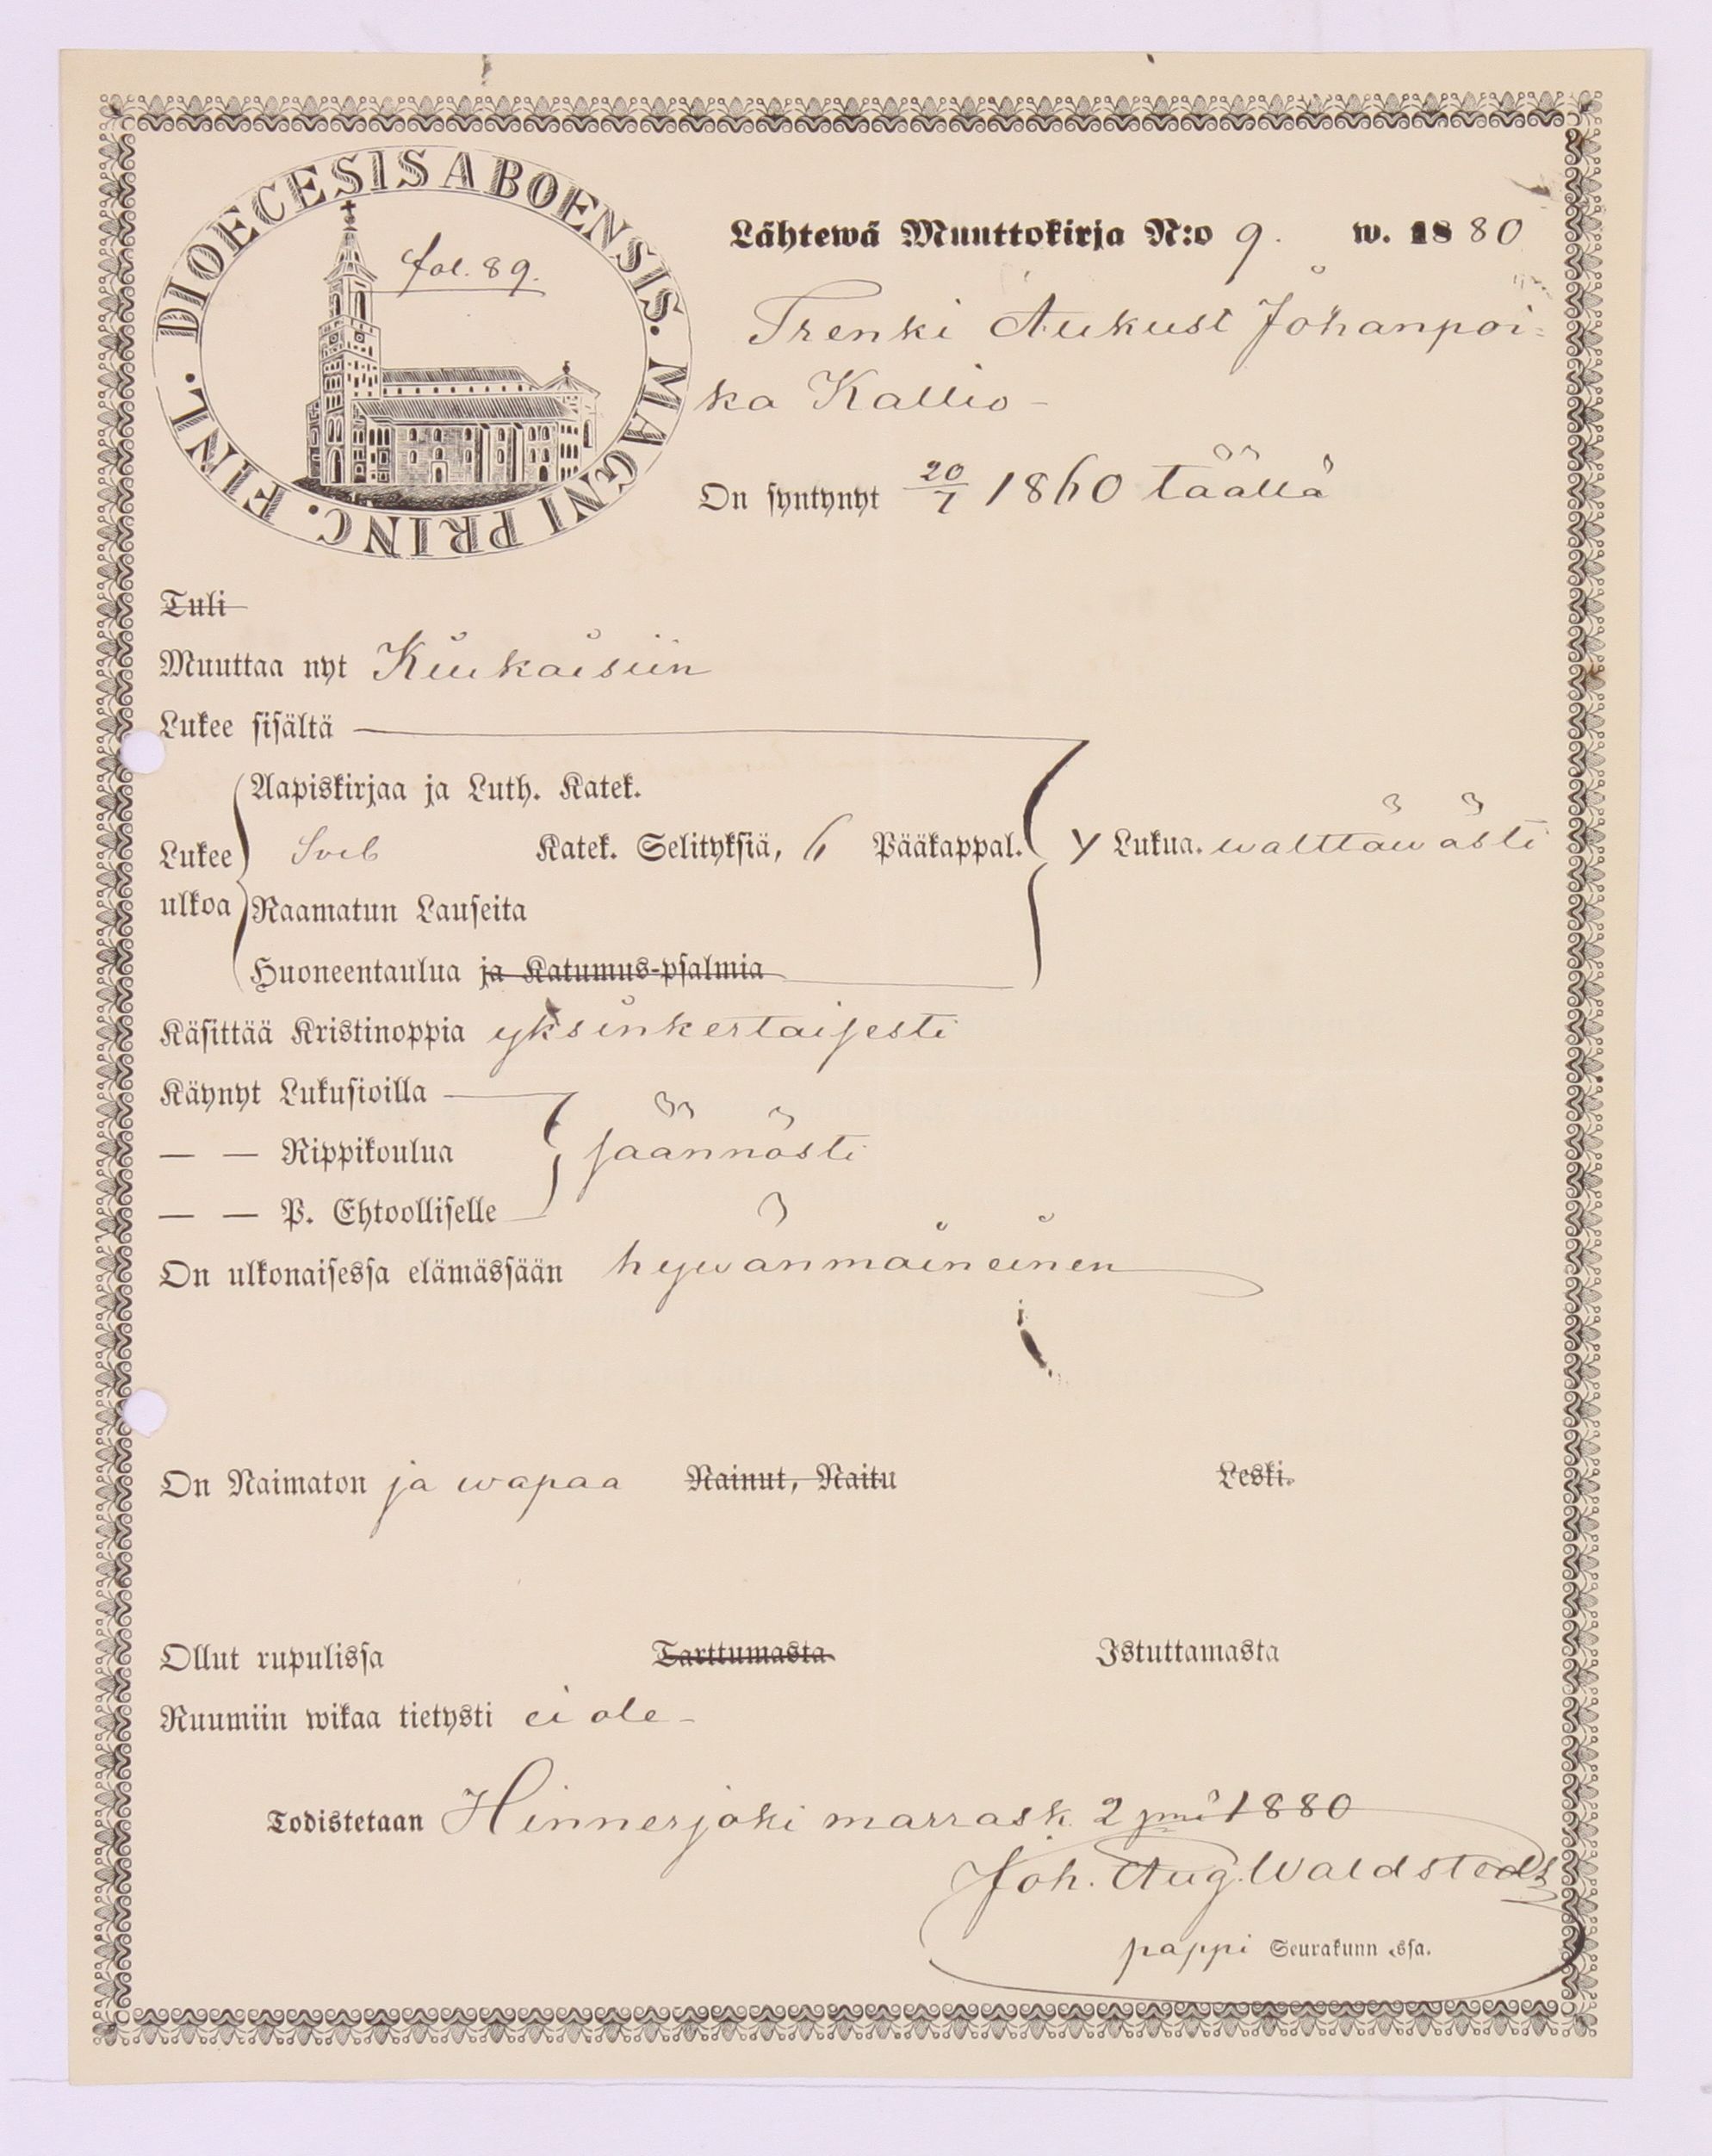 DIOECESIS ABOENSIS. MAGNI PRINC. FINL.
fol. 89.
Lähtewä Muuttokirja N:o 9. w. 1880
Trenki Aukust Johanpoi-
ka Kallio -
On syntynyt 20/7 1860 täällä
Tuli
Muuttaa nyt Kiukaisiin
Lukee sisältä
Aapiskirjaa ja Luth. Katek.
Lukee ulkoa Sveb Katek. Selityksiä, 6 Pääkappal. y Lukua. walttäwästi
Raamatun Lauseita
Huoneentaulua ja Katumus-psalmia
Käsittää Kristinoppia yksinkertaisesti
Käynyt Lukusioilla
— — Rippikoulua säännösti
— — P. Ehtoolliselle
On ulkonaisessa elämässään hywänmaineinen
On Naimaton ja wapaa Nainut, Naitu Leski.
Ollut rupulissa Tarttumasta Istuttamasta
Ruumiin wikaa tietysti ei ole -
Todistetaan Hinnerjoki marrask. 2 pnä 1880
Joh. Aug. Waldstedt
pappi Seurakunn essa.